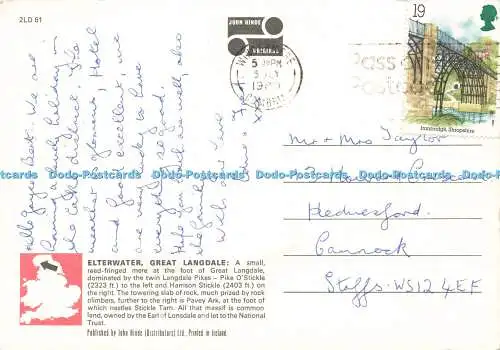 2LD 61
JOHN HINDE
ORIGINAL
5 JULY
19
Ironbridge, Shropshire
Hello Joyce & Bert. We are
having a lovely holiday in
the Lake district. The
weather is glorious, Hotel
and food excellent, we
are very lucky to have
everything so good.
Hope you are both well, also
the family.
With love from
Mr & Mrs Taylor
Hednesford.
Cannock
Staffs. WS12 4EF
Dodo-Postcards Dodo-Postcards Dodo-Postcards Dodo-Postcards
ELTERWATER, GREAT LANGDALE: A small,
reed-fringed mere at the foot of Great Langdale,
dominated by the twin Langdale Pikes – Pike O'Stickle
(2323 ft.) to the left and Harrison Stickle (2403 ft.) on
the right. The towering slab of rock, much prized by rock
climbers, further to the right is Pavey Ark, at the foot of
which nestles Stickle Tarn. All that massif is common
land, owned by the Earl of Lonsdale and let to the National
Trust.
Published by John Hinde (Distributors) Ltd., Printed in Ireland.